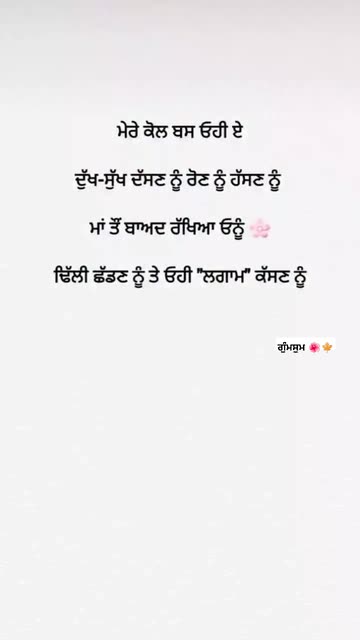 ਮੇਰੇ ਕੋਲ ਬਸ ਓਹੀ ਏ
ਦੁੱਖ-ਸੁੱਖ ਦੱਸਣ ਨੂੰ ਰੋਣ ਨੂੰ ਹੱਸਣ ਨੂੰ
ਮਾਂ ਤੋਂ ਬਾਅਦ ਰੱਖਿਆ ਓਨੂੰ 🌸
ਢਿੱਲੀ ਛੱਡਣ ਨੂੰ ਤੇ ਓਹੀ "ਲਗਾਮ" ਕੱਸਣ ਨੂੰ
ਗੁੰਮਸੁਮ 🌺🍁